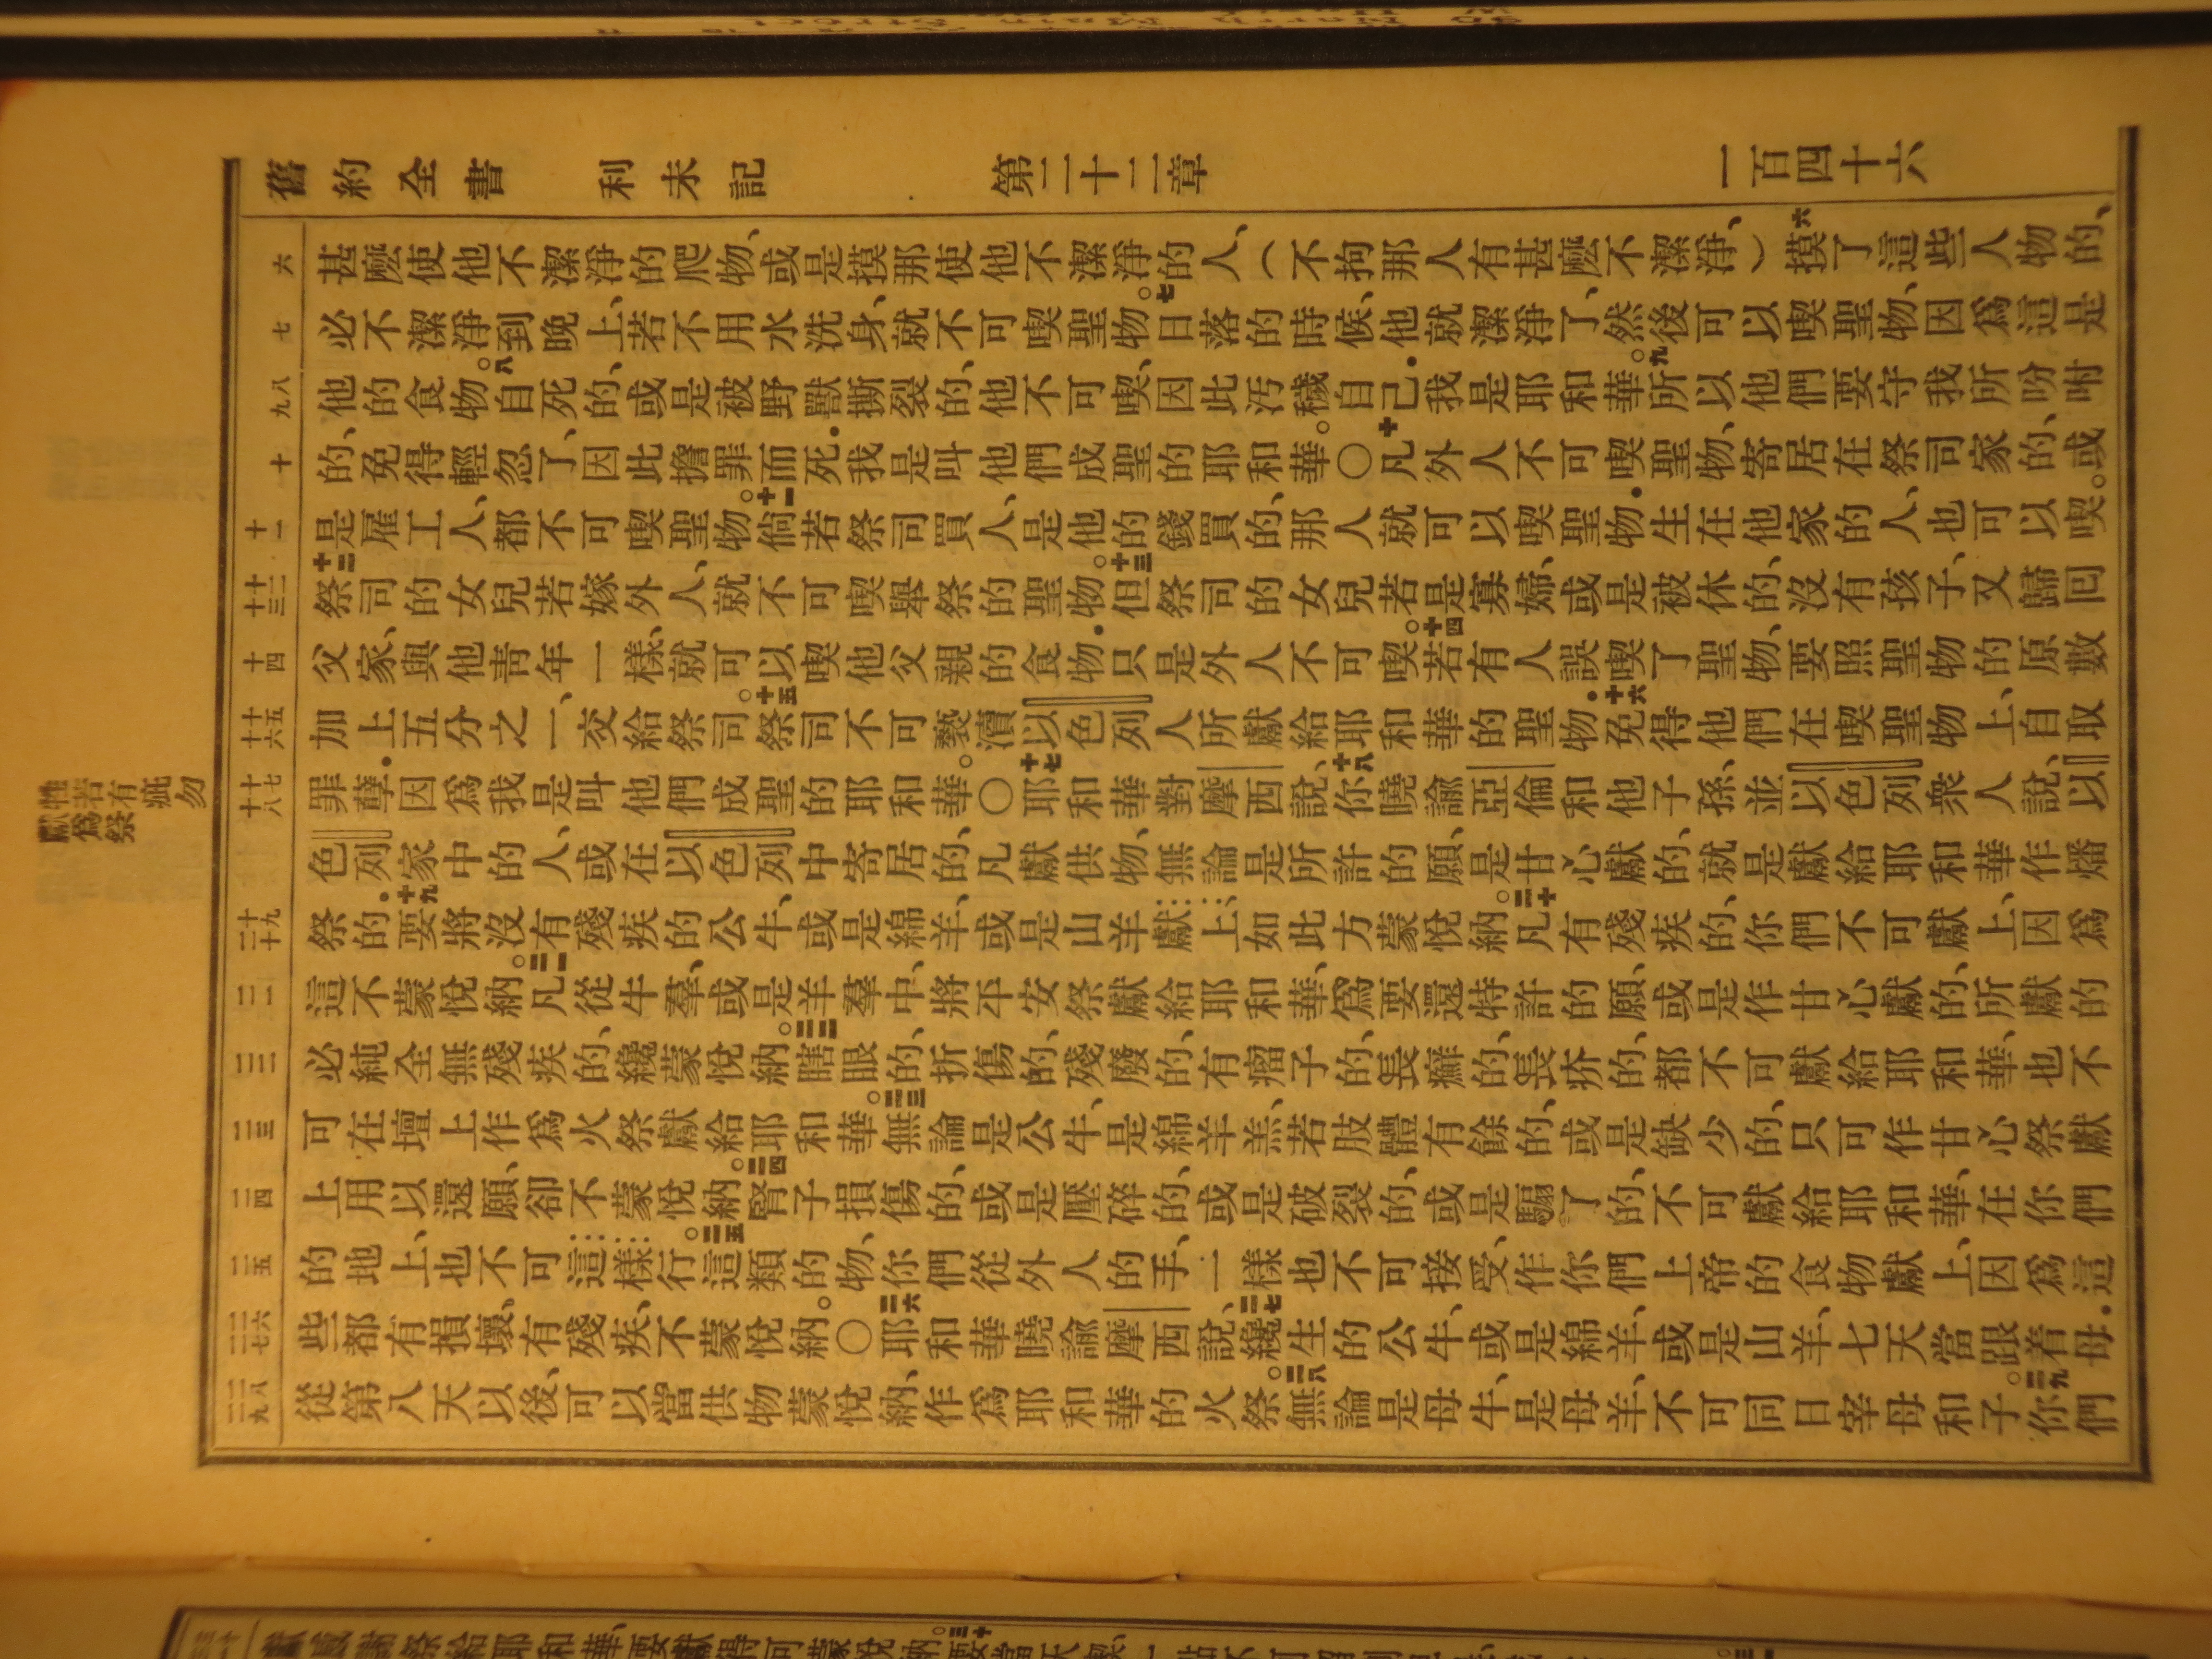 舊約全書 利未記 第二十二章 一百四十六
牲若有疵勿
獻爲祭
六
七
八
九
十
十一
十二
十三
十四
十五
十六
十七
十八
十九
二十
二一
二二
二三
二四
二五
二六
二七
二八
二九
甚麼使他不潔淨的爬物、或是摸那使他不潔淨的人、(不拘那人有甚麼不潔淨、)六摸了這些人物的、
必不潔淨到晚上、若不用水洗身、就不可喫聖物。七日落的時候、他就潔淨了、然後可以喫聖物、因爲這是
他的食物。八自死的、或是被野獸撕裂的、他不可喫、因此污穢自己．我是耶和華。九所以他們要守我所吩咐
的、免得輕忽了、因此擔罪而死．我是叫他們成聖的耶和華。〇十凡外人不可喫聖物、寄居在祭司家的、或
是雇工人、都不可喫聖物。十一倘若祭司買人、是他的錢買的、那人就可以喫聖物．生在他家的人、也可以喫。
十二祭司的女兒若嫁外人、就不可喫舉祭的聖物。十三但祭司的女兒若是寡婦、或是被休的、沒有孩子、又歸回
父家、與他靑年一樣、就可以喫他父親的食物．只是外人不可喫。十四若有人誤喫了聖物、要照聖物的原數
加上五分之一、交給祭司。十五祭司不可褻瀆以色列人所獻給耶和華的聖物．十六免得他們在喫聖物上、自取
罪孽．因爲我是叫他們成聖的耶和華。〇十七耶和華對摩西說、十八你曉諭亞倫和他子孫、並以色列衆人說、以
色列家中的人、或在以色列中寄居的、凡獻供物、無論是所許的願、是甘心獻的、就是獻給耶和華作燔
祭的．十九要將沒有殘疾的公牛、或是綿羊、或是山羊獻上、如此方蒙悅納。二十凡有殘疾的、你們不可獻上、因爲
這不蒙悅納。二一凡從牛羣、或是羊羣中、將平安祭獻給耶和華、爲要還特許的願、或是作甘心獻的、所獻的
必純全無殘疾的、纔蒙悅納。二二瞎眼的、折傷的、殘廢的、有瘤子的、長癬的、長疥的、都不可獻給耶和華、也不
可在壇上作爲火祭獻給耶和華。二三無論是公牛、是綿羊羔、若肢體有餘的、或是缺少的、只可作甘心祭獻
上用以還願、卻不蒙悅納。二四腎子損傷的、或是壓碎的、或是破裂的、或是騸了的、不可獻給耶和華、在你們
的地上、也不可這樣行。二五這類的物、你們從外人的手、一樣也不可接受、作你們上帝的食物獻上、因爲這
些都有損壞、有殘疾、不蒙悅納。〇二六耶和華曉諭摩西說、二七纔生的公牛、或是綿羊、或是山羊、七天當跟着母．
從第八天以後、可以當供物蒙悅納、作爲耶和華的火祭。二八無論是母牛、是母羊、不可同日宰母和子。二九你們